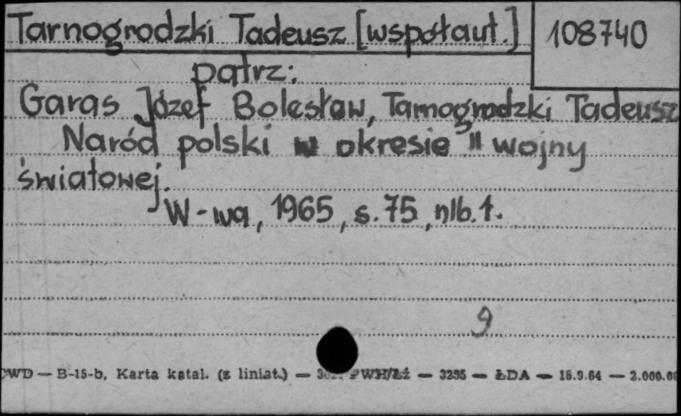 Tarnogrodzki Tadeusz [współaut.]
108740
patrz:
Garas Józef Bolesław, Tarnogrodzki Tadeusz
Naród polski w okresie II wojny
światowej.
W-wa, 1965, s. 75, nlb. 1.
9
OWD — B-15-b, Karta katal. (z liniat.) — PWH/Łż — 3255 — ŁDA — 15.9.64 — 2.000.00